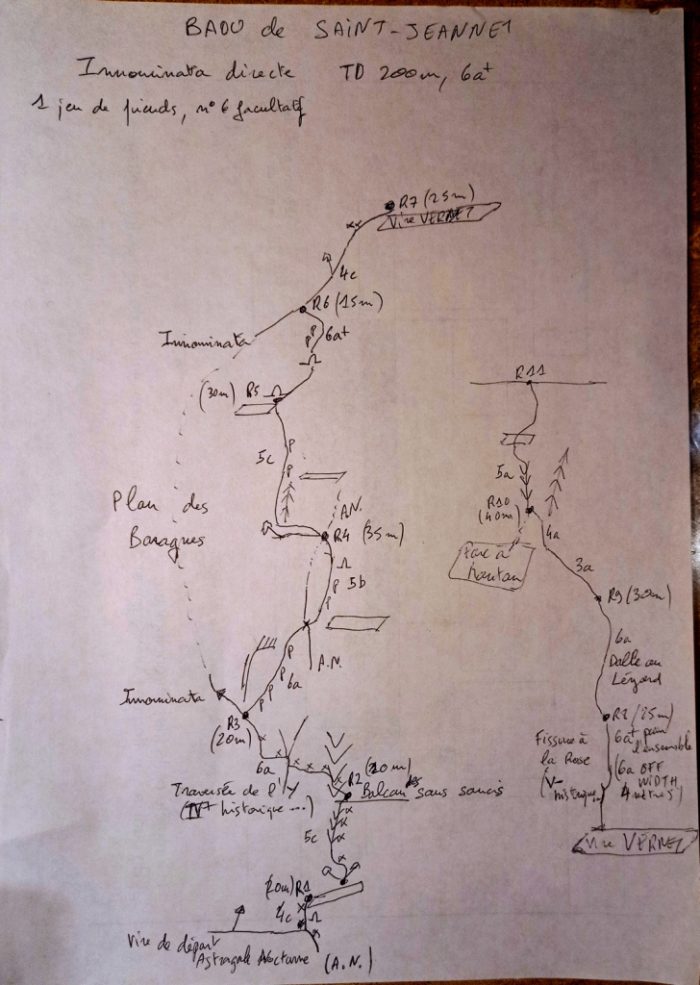 BAOU de SAINT-JEANNET
Innominata directe TD 200m, 6a+
1 jeu de friends, n°6 facultatif
R7 (25m)
Vire VERNET
4c
R6 (15m)
6a+
Innominata
(30m) R5
5c
Plan des
Baragnes
A.N.
R4 (35m)
5b
A.N.
6a
Innominata
R3
(20m)
6a
Traversée de l'Y
(IV+ historique...)
R2 (20m)
Balcon sans soucis
5c
(20m) R1
4c
Vire de départ
Astragale Nocturne (A.N.)
R11
5a
R10
(40m)
4a
3a
R9 (30m)
6a
Dalle au
Lézard
R8 (25m)
6a+ pour
l'ensemble
Fissure à
la Rose
(V-
historique...)
(6a OFF
WIDTH
4 mètres)
Vire VERNET